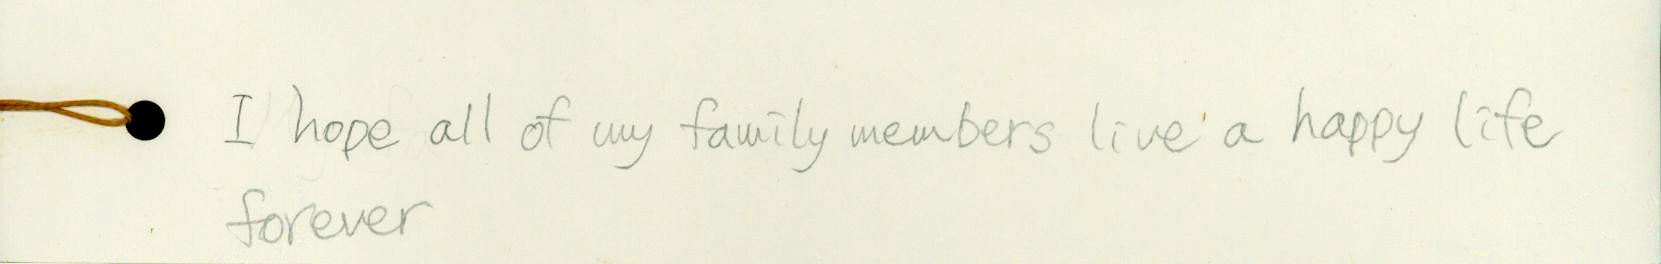 I hope all of my family members live a happy life
forever